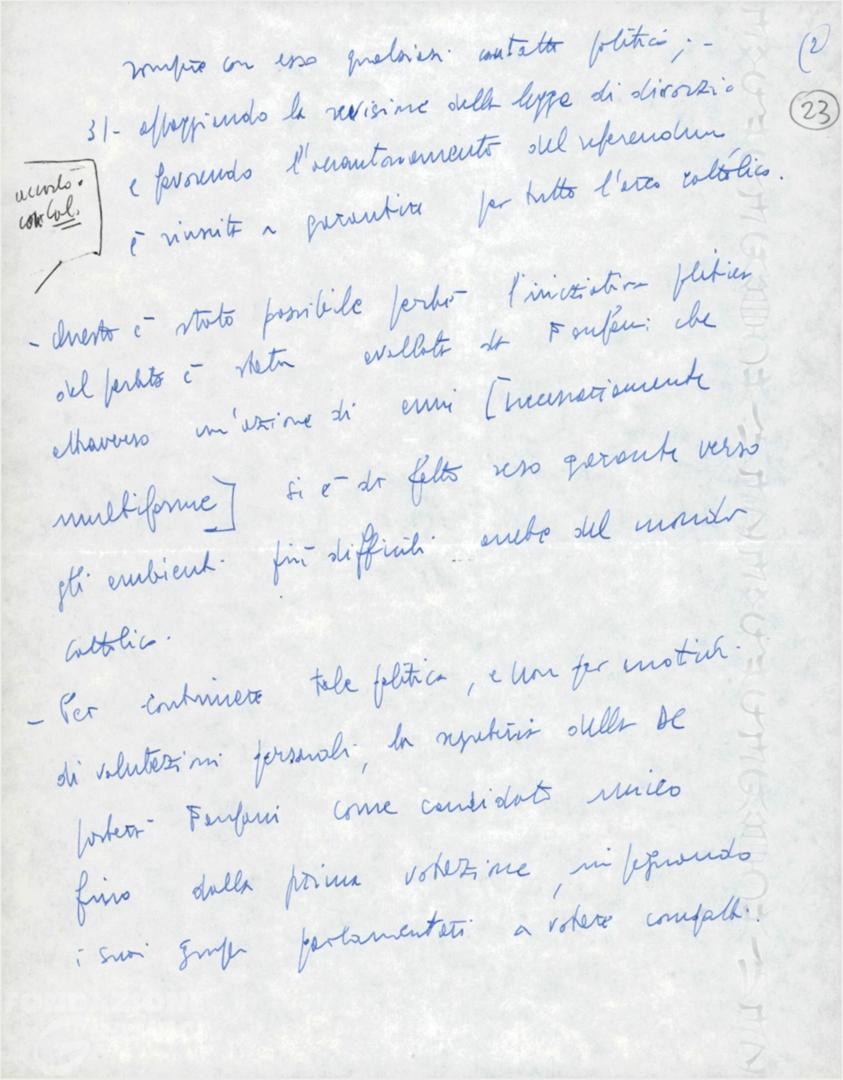 (2
23
rompere con esso qualsiasi contatto politico; -
3) - appoggiando la revisione della legge di divorzio
e favorendo l'accantonamento del referendum
è riuscita a garantire per tutto l'arco cattolico.
accordo
con Col.
- Questo è stato possibile perché l'iniziativa politica
del partito è stata avallata da Fanfani che
attraverso un'azione di anni [necessariamente
multiforme] si è di fatto reso garante verso
gli ambienti più difficili anche del mondo
cattolico.
- Per continuare tale politica, e non per motivi
di valutazioni personali, la segreteria della DC
porterà Fanfani come candidato unico
fino dalla prima votazione, impegnando
i suoi gruppi parlamentari a votare compatti.